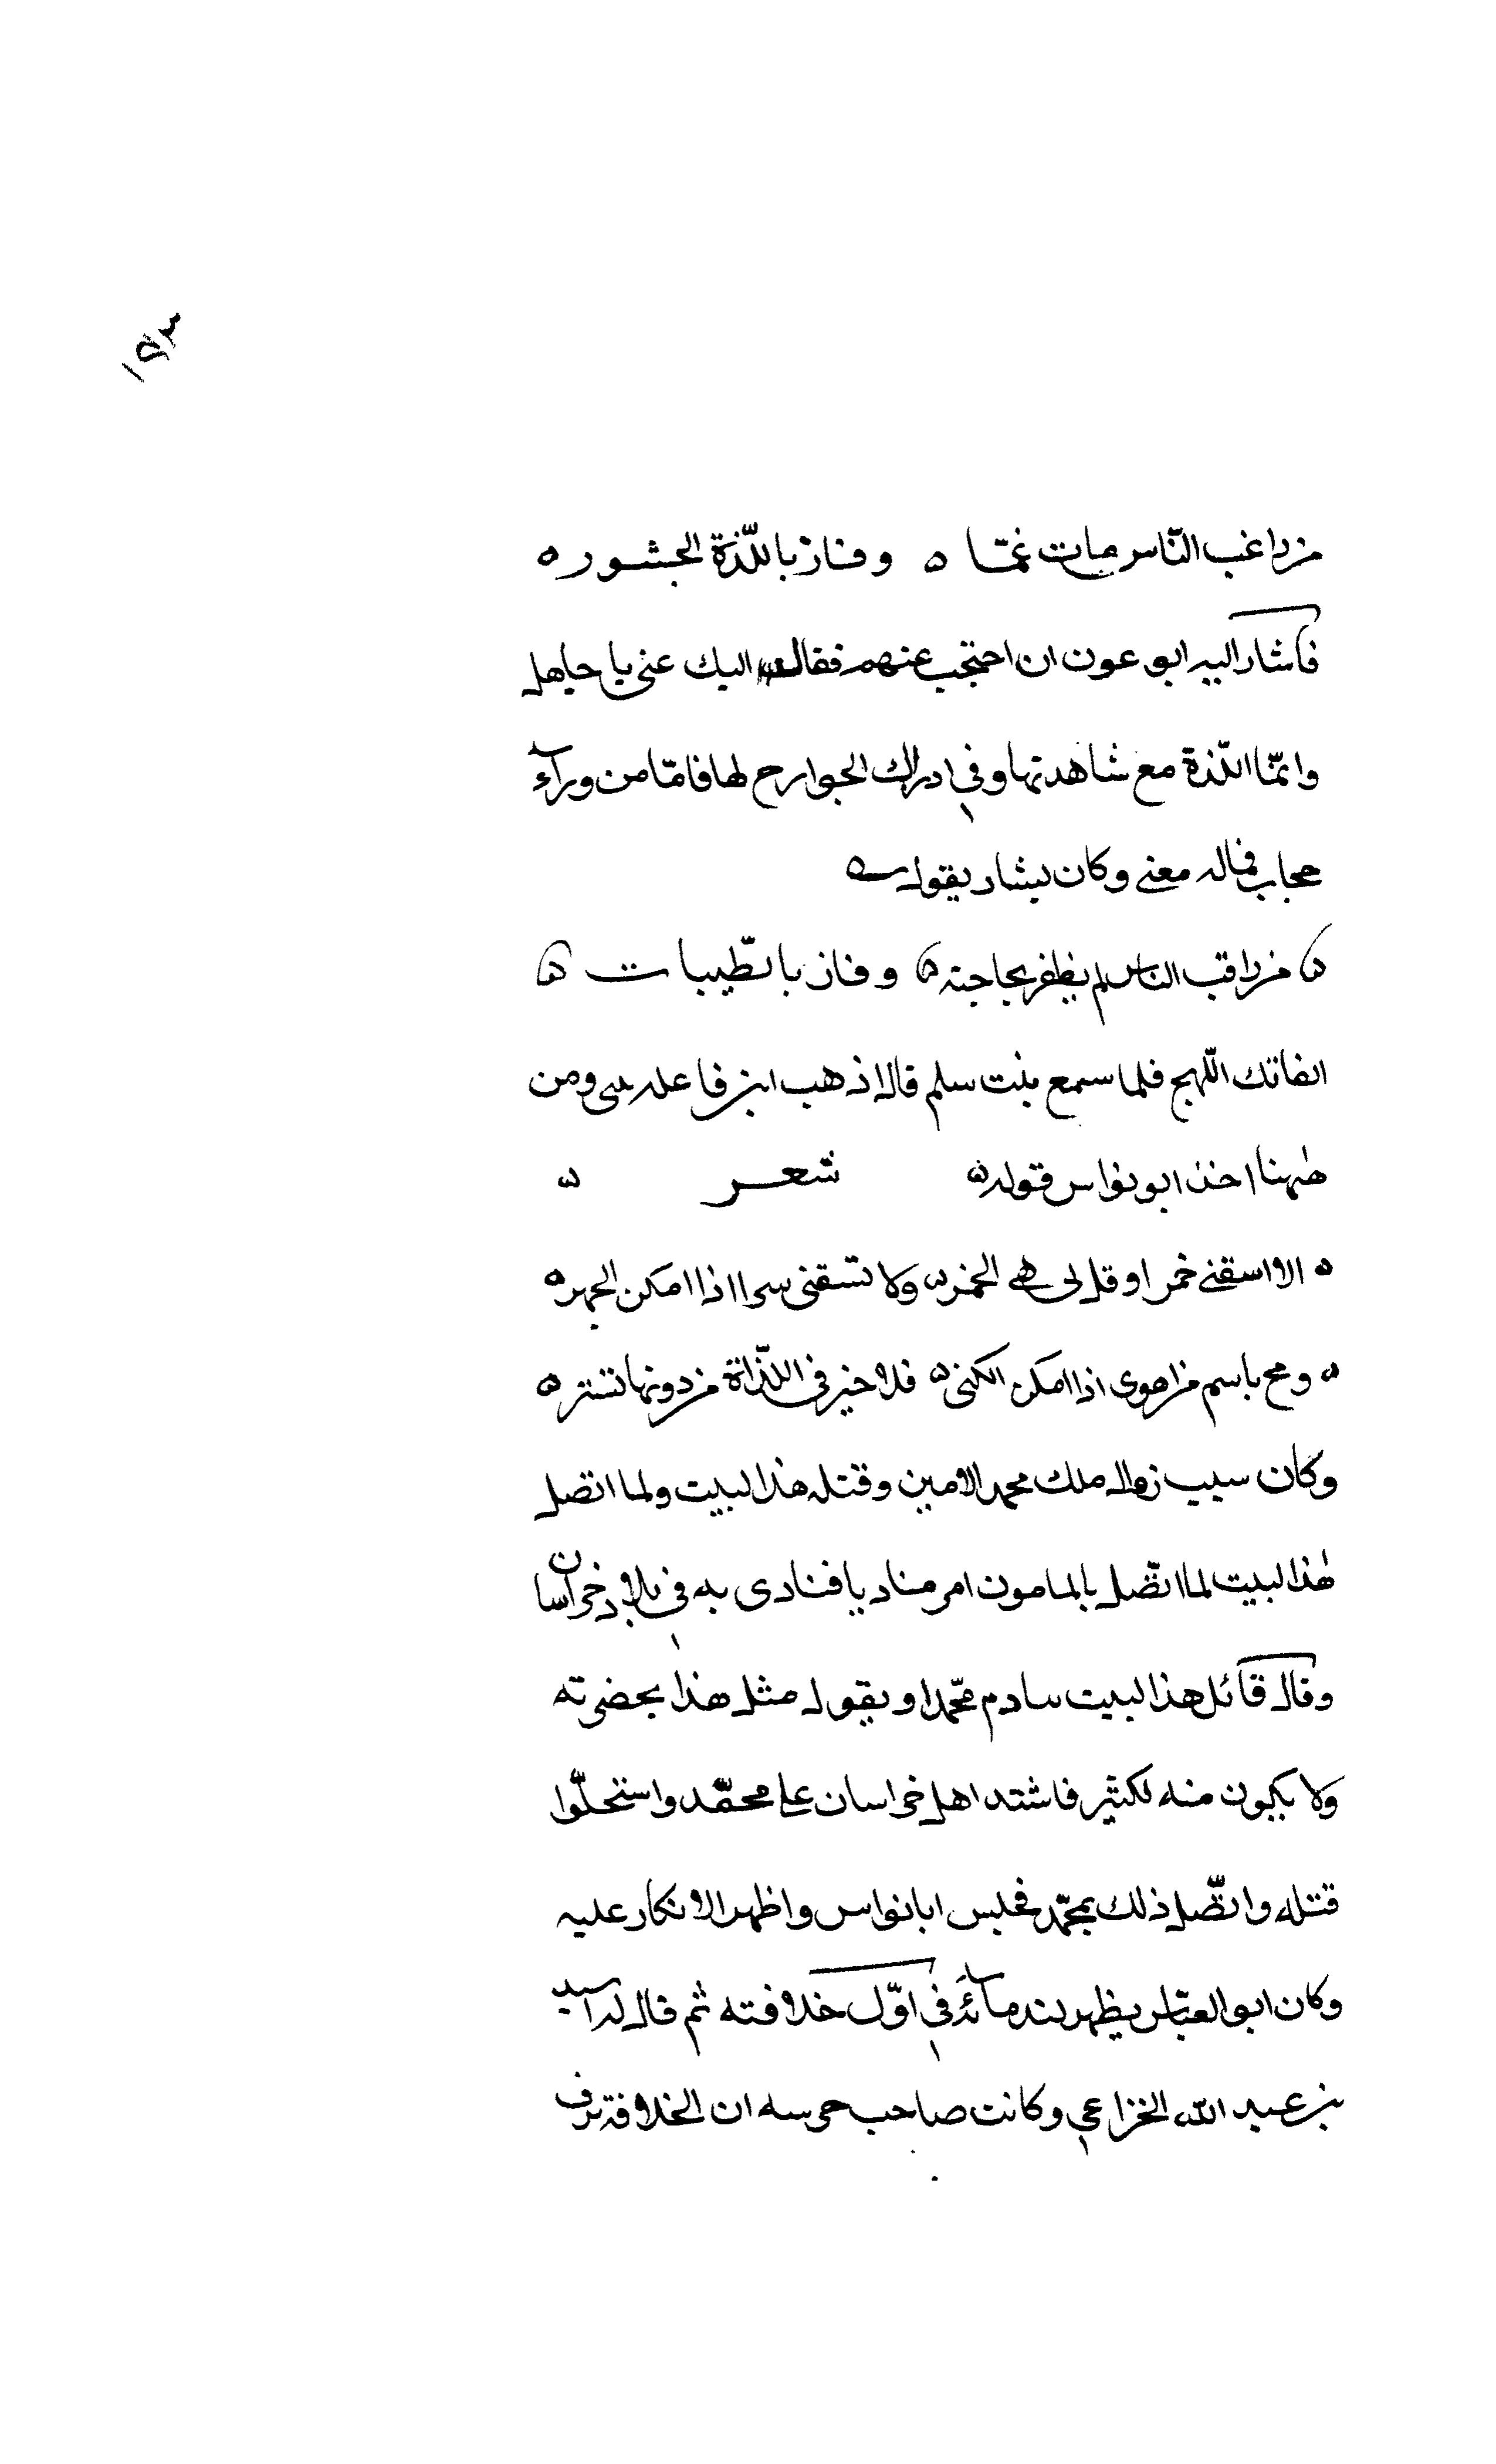 ١٥٢
من راغب الناس مات غمّا ه وفاز باللّذة الجسور ه
فاشار اليه ابو عون ان احتجب عنهم فقال اليك عنى يا جاهل
وانمّا اللّذة مع شاهدتها وفى ادراك الجوارح لها فامّا من ورآء
حجاب فماله معنى وكان بشار يقول ه
ه من راقب الناس لم يظفر بحاجته ه وفاز بالطّيبات ه
الفاتك اللّهج فلما سمع بنت سلم قال اذهب ابن فاعله ومن
ههنا اخذ ابو نواس قوله ه شعر ه
ه الا اسقنى خمرا وقل لى هى الخمر ه ولا تسقنى سرا اذا امكن الجهر ه
ه وبح باسم من اهوى اذا امكن الكنى ه فلا خير فى اللّذاة من دونها تستر ه
وكان سبب زوال ملك محمد الامين وقتله هذا البيت ولما اتصل
هذا البيت لما اتصل بالمامون امر مناديا فنادى به فى بلاد خراسان
وقال قائل هذا البيت ينادم محّمدا ويقول مثل هذا بحضرته
ولا يكون منه نكير فاشتد اهل خراسان على محمّد واستحلّوا
قتله واتصّل ذلك بمحمّد فحبس ابا نواس واظهر الانكار عليه
وكان ابو العبّاس يظهر لندمائه فى اوّل خلافته ثم قال له اسيد
بن عبد الله الخزاعى وكانت صاحب حرسه ان الخلافة